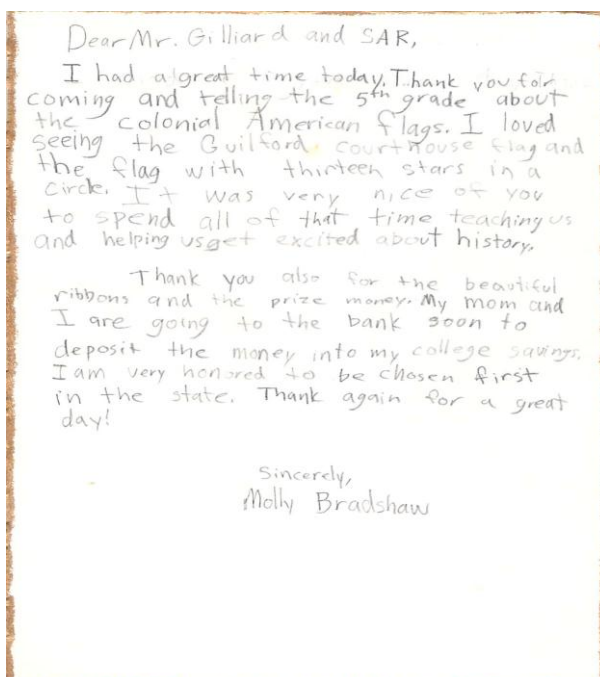 Dear Mr. Gilliard and SAR,
I had a great time today. Thank you for
coming and telling the 5th grade about
the colonial American flags. I loved
seeing the Guilford courthouse flag and
the flag with thirteen stars in a
circle. It was very nice of you
to spend all of that time teaching us
and helping us get excited about history.
Thank you also for the beautiful
ribbons and the prize money. My mom and
I are going to the bank soon to
deposit the money into my college savings.
I am very honored to be chosen first
in the state. Thank again for a great
day!
Sincerely,
Molly Bradshaw